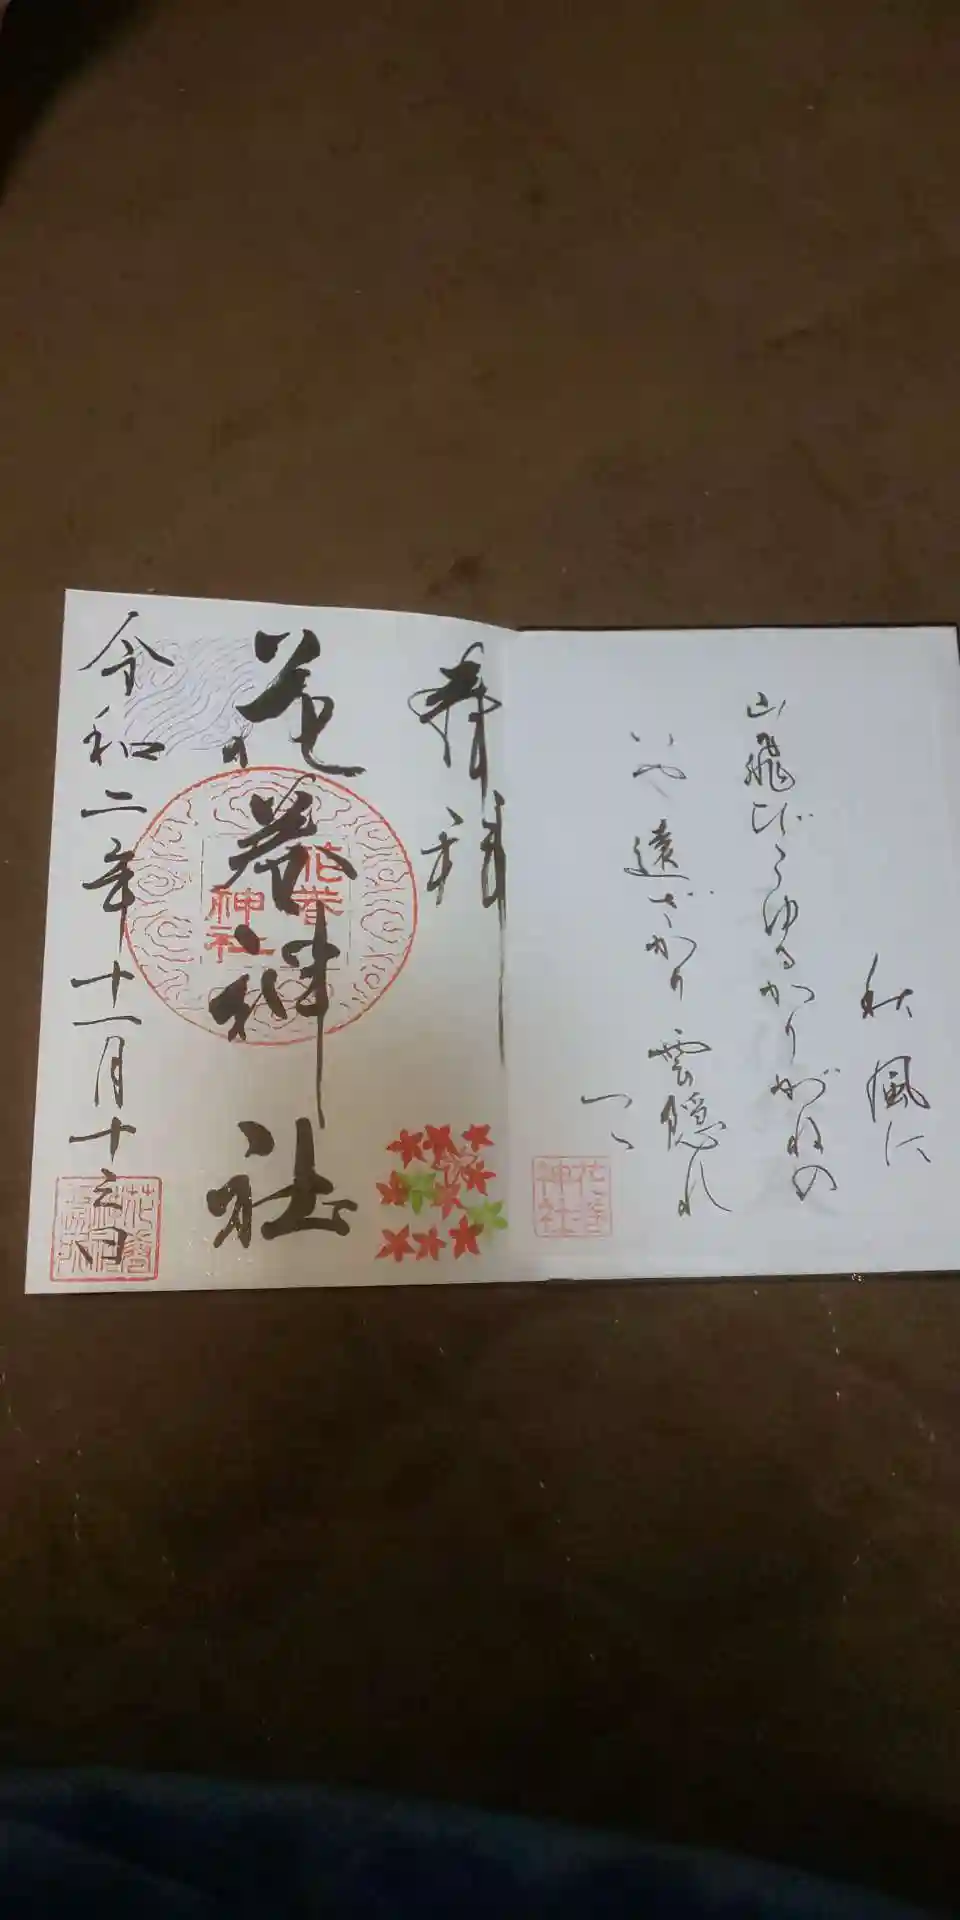 秋風に
山飛びこゆるかりがねの
いや遠ざかり 雲隠れ
つつ
花巻神社
奉拝
花巻神社
花巻神社
令和二年十一月十三日